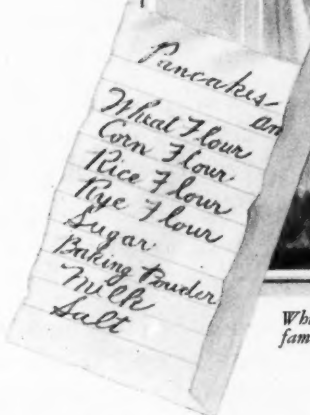 Pancakes
an
Wheat Flour
Corn Flour
Rice Flour
Rye Flour
Sugar
Baking Powder
Milk
Salt
Whi
fam